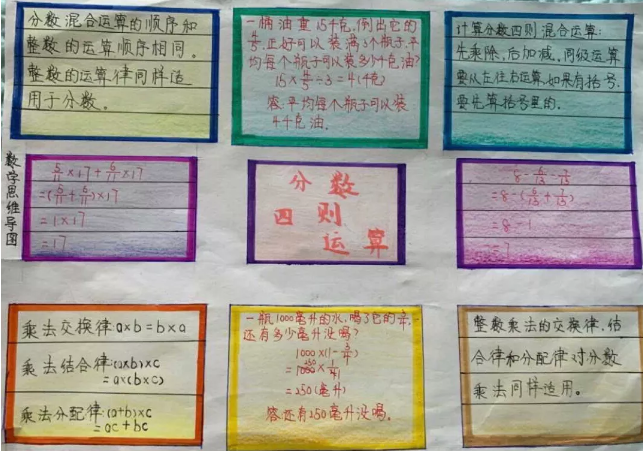 分数混合运算的顺序和
整数的运算顺序相同。
整数的运算律同样适
用于分数。
一桶油重15千克,倒出它的
4/5,正好可以装满3个瓶子,平
均每个瓶子可以装多少千克油?
15×4/5÷3=4(千克)
答:平均每个瓶子可以装
4千克油.
计算分数四则混合运算:
先乘除,后加减,同级运算
要从左往右运算,如果有括号,
要先算括号里的.
数学思维导图
5/11×17+6/11×17
=(5/11+6/11)×17
=1×17
=17
分数
四则
运算
=8-1
=7
乘法交换律:a×b=b×a
乘法结合律:(a×b)×c
=a×(b×c)
乘法分配律:(a+b)×c
=ac+bc
一瓶1000毫升的水,喝了它的3/4,
还有多少毫升没喝?
1000×(1-3/4)
=1000×1/4
=250(毫升)
答:还有250毫升没喝。
整数乘法的交换律、结
合律和分配律对分数
乘法同样适用。